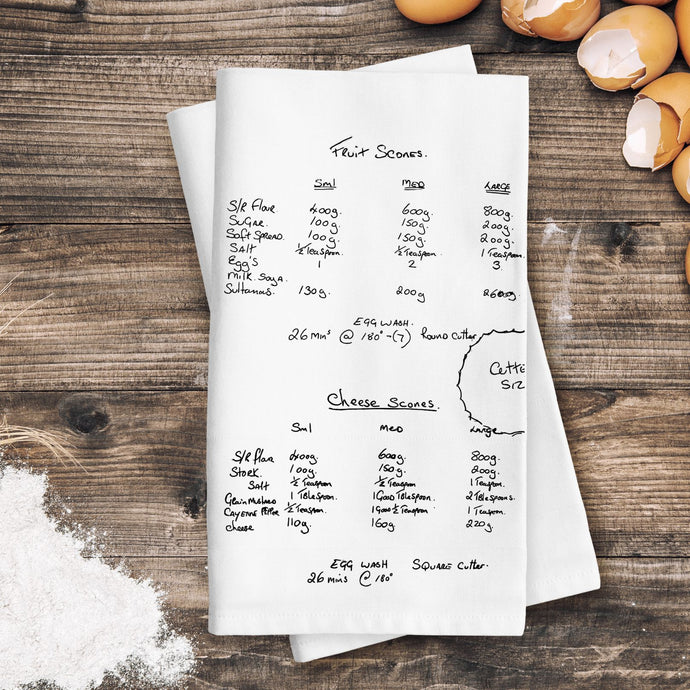 Fruit Scones.
Sml MED LARGE
S/R Flour 400g. 600g. 800g.
Sugar. 100g. 150g. 200g.
Soft Spread. 100g. 150g. 200g.
Salt ½ Teaspoon. ½ Teaspoon. 1 Teaspoon.
Egg's 1 2 3.
Milk. Soya.
Sultanas. 130g. 200g 260g.
EGG WASH.
26 Mins @ 180°-(7) Round Cutter
Cutte
Siz
Cheese Scones.
Sml MED Large
S/R Flour 400g. 600g. 800g.
Stork. 100g. 150g. 200g.
Salt ½ Teaspoon ½ Teaspoon 1 Teaspoon.
Grain Mustard 1 TbleSpoon. 1 Good TbleSpoon. 2 TbleSpoons.
Cayenne Pepper ½ Teaspoon. 1 Good ½ Teaspoon 1 Teaspoon.
Cheese 110g. 160g. 220g.
EGG WASH SQUARE Cutter.
26 mins @ 180°